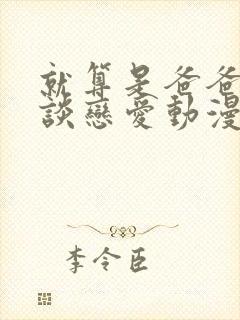 就算是爸爸
談戀愛動漫
李令臣